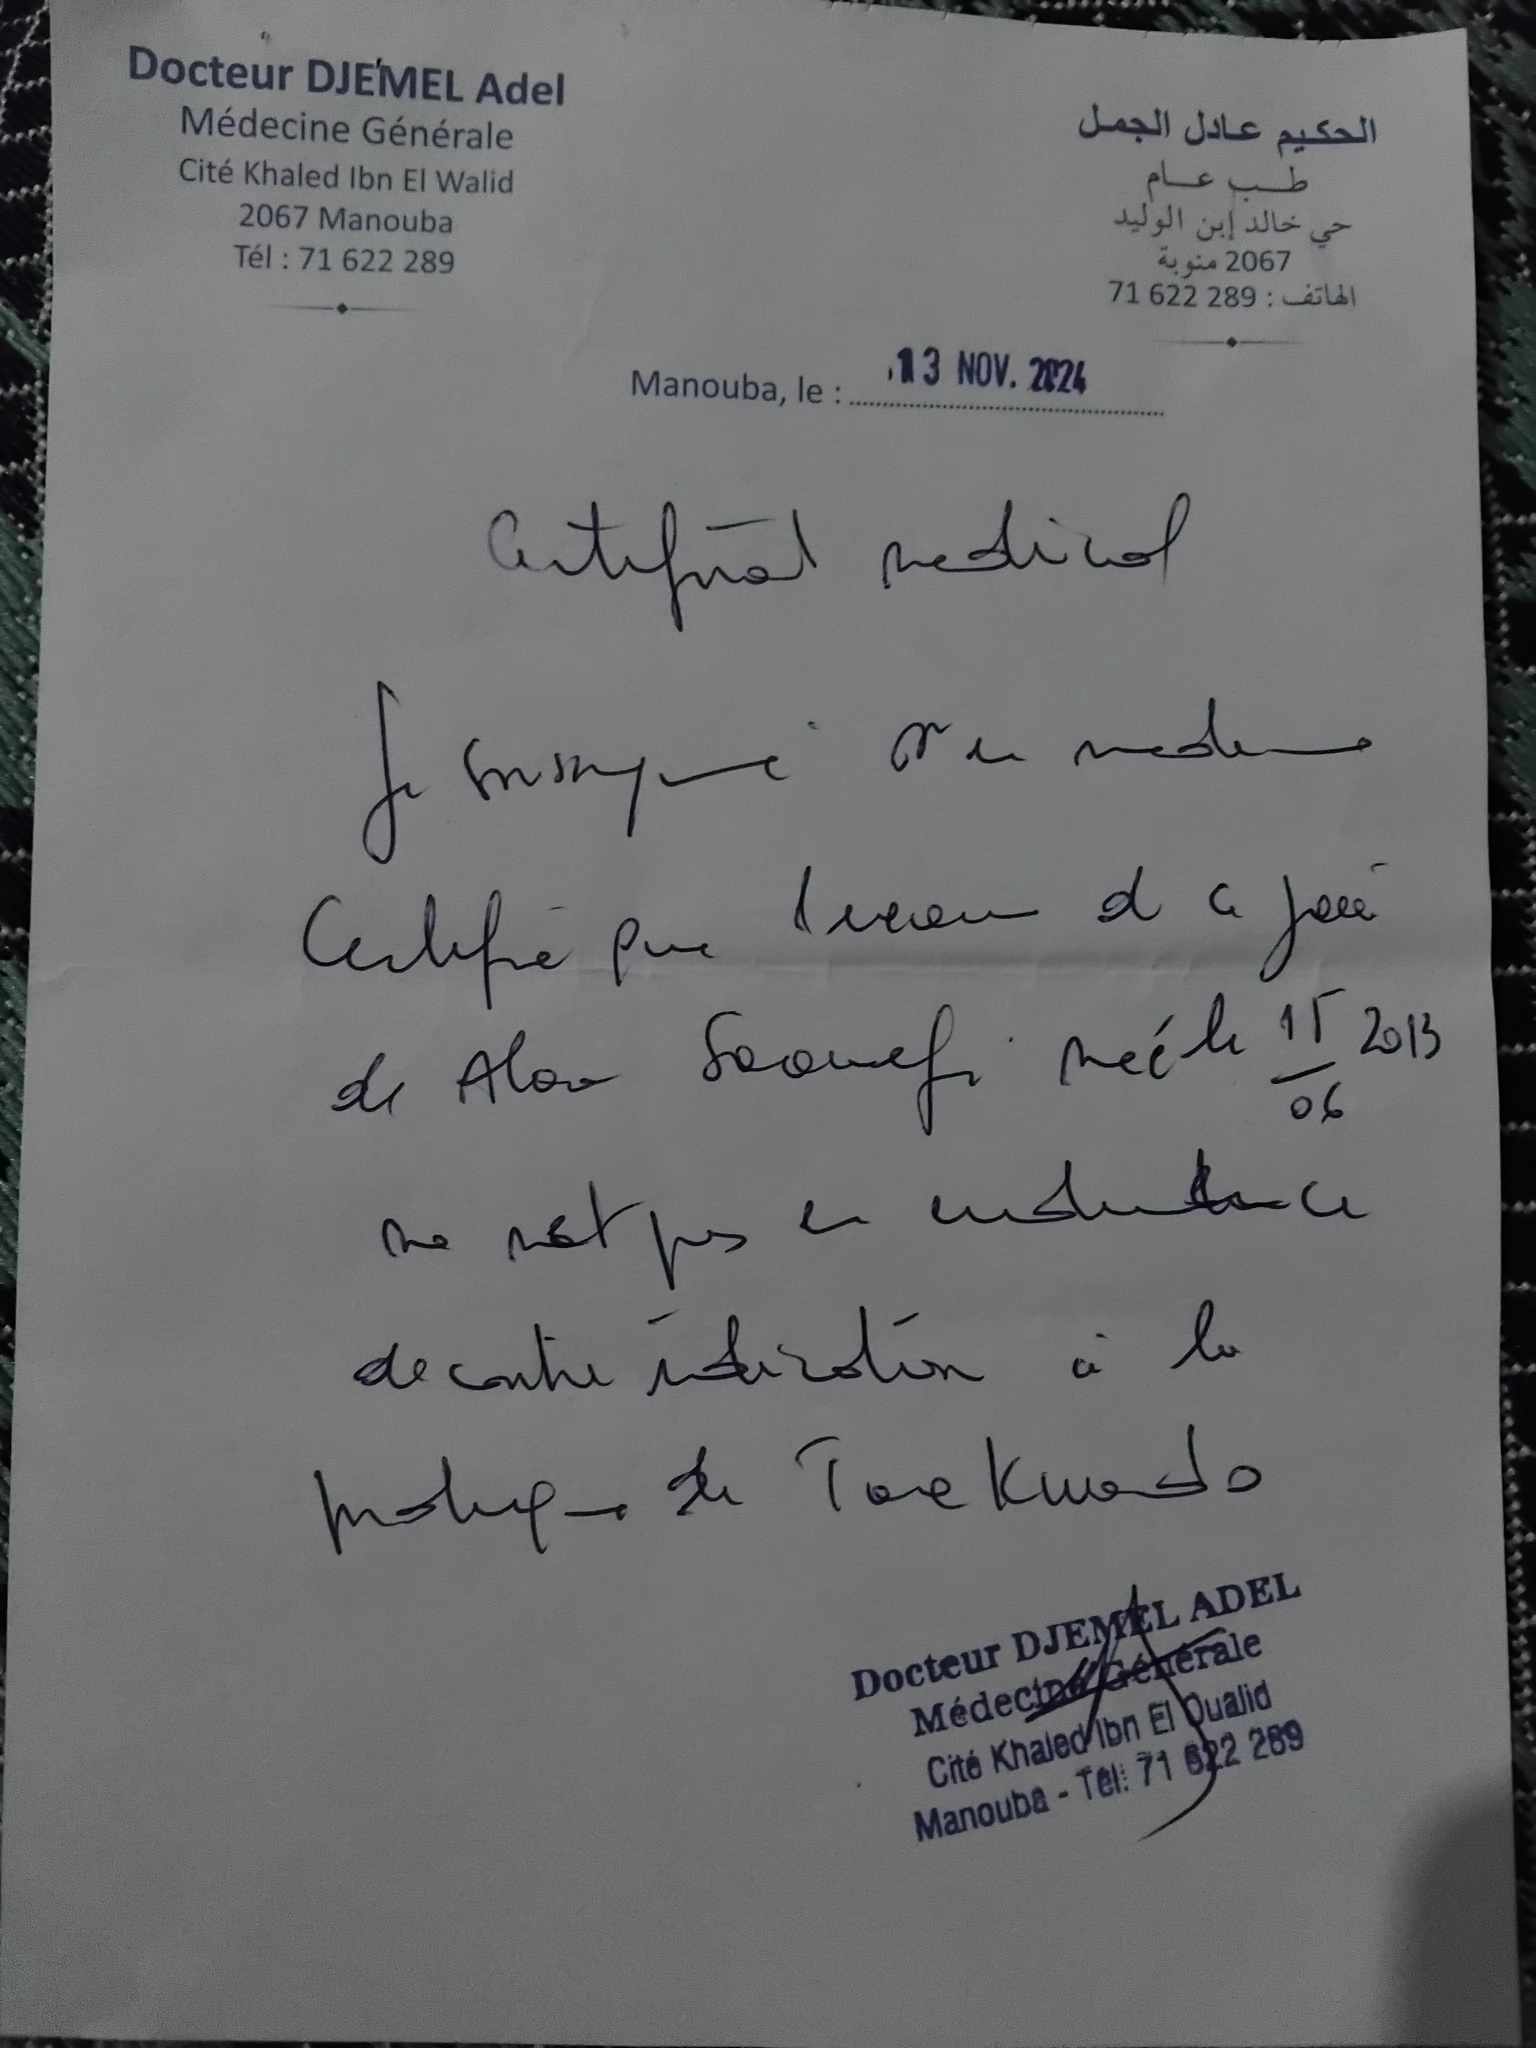 Docteur DJEMEL Adel
Médecine Générale
Cité Khaled Ibn El Walid
2067 Manouba
Tél : 71 622 289
الحكيم عادل الجمل
طب عام
حي خالد إبن الوليد
2067 منوبة
الهاتف : 71 622 289
Manouba, le : 13 NOV. 2024
Certificat medical
Je soussigné en medecine
Certifie que l'examen de ce jour
de né le 15/06 2013
ne met pas en evidence
de contre indication à la
pratique de Taekwondo
Docteur DJEMEL ADEL
Médecine Générale
Cité Khaled Ibn El Oualid
Manouba - Tél: 71 622 289